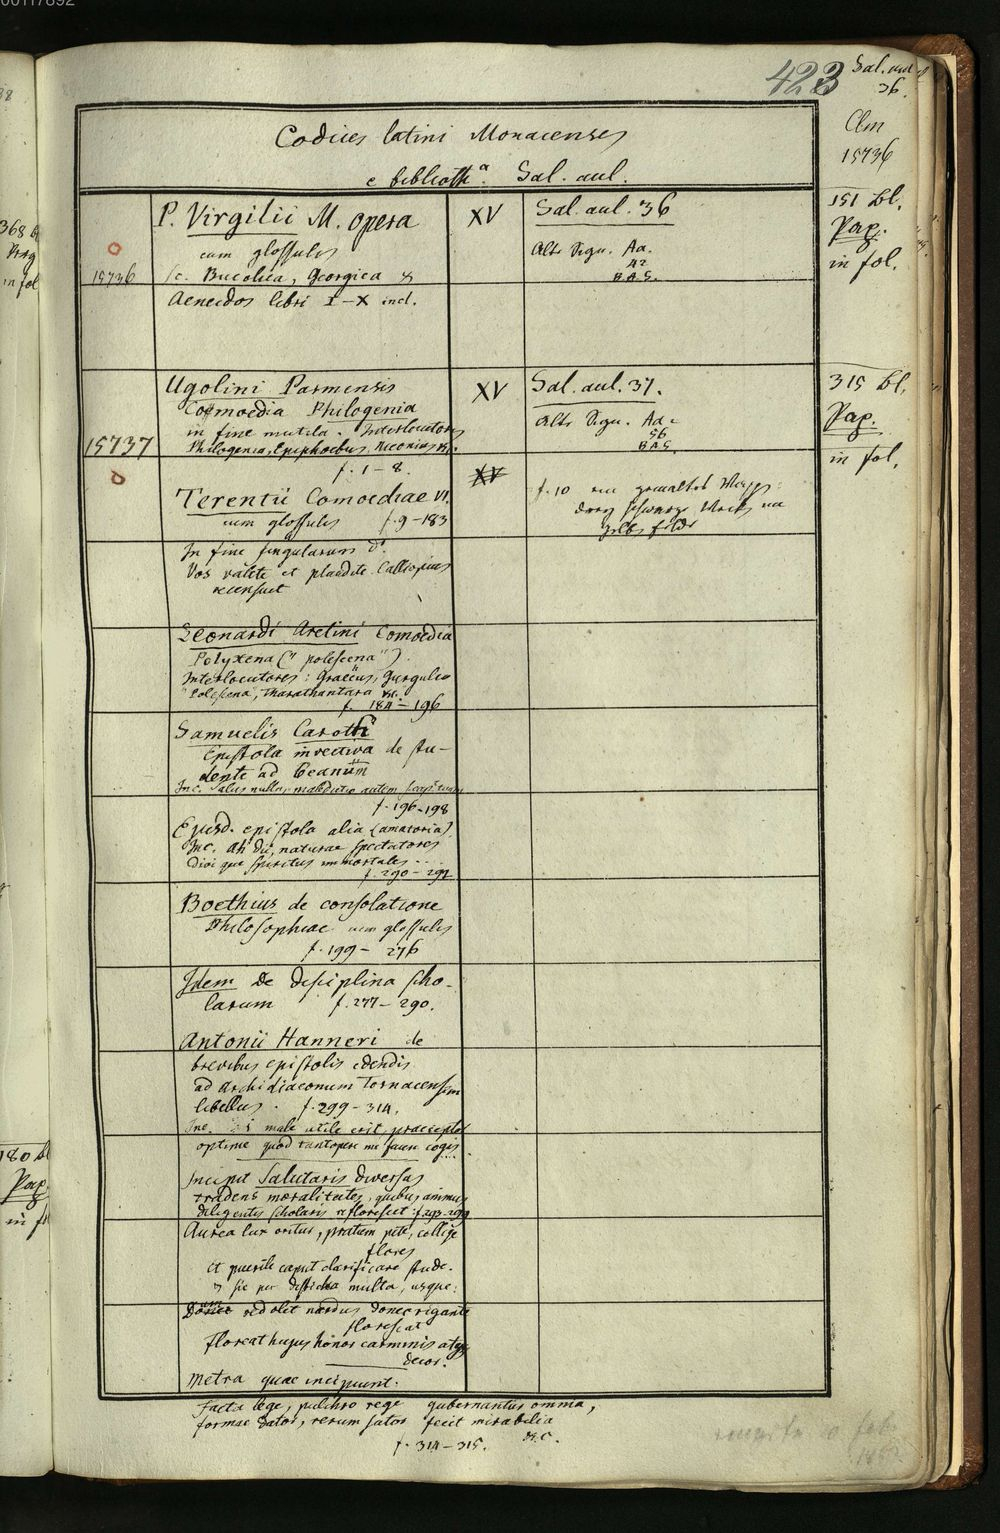 00117892
423
Sal. aul.
36.
Clm
15736
Codices latini Monacenses
e biblioth.ª Sal. aul.
P. Virgilii M. opera
XV
Sal. aul. 36
151 Bl.
Pap.
in fol.
cum glossulis
Alte Sign. Aa.
A2
B.A.S.
15736
sc. Bucolica, Georgica &
Aeneidos libri I–X incl.
Ugolini Parmensis
XV
Sal. aul. 37.
315 Bl.
Pap.
in fol.
Comoedia Philogenia
in fine mutila. Interlocutores
Alte Sign. Aa.
56
B.A.S.
15737
Philogenia, Epiphoebus, Niconius
f. 1–8.
XV
Terentii Comoediae VI.
cum glossulis f. 9–183
f. 10 ein gemaltes Wappen:
drey schwarze
gelbs feld
In fine singularum
Vos valete et plaudite. Calliopius
recensuit
Leonardi Aretini Comoedia
Polyxena (" poliscena")
Interlocutores: Graccus, Gurgulio
Poliscena, Tharathantara
f. 184–196
Samuelis Carotti
Epistola invectiva de stu-
dente ad Beanum
Inc. Salus nulla, maledictio autem
f. 196–198
Ejusd. epistola alia (amatoria)
Inc. Ah dii, naturae spectatores
Dioi que spiritus immortales ...
f. 290–292
Boethius de consolatione
Philosophiae cum glossulis
f. 199–276
Idem de disciplina scho-
larum f. 277–290.
Antonii Hanneri de
brevibus epistolis edendis
ad Archidiaconum Tornacensem
libellus. f. 299–314.
Inc. male utile erit praeceptor
optime quod tantopere me facere cogis
Incipit Salutaris diversas
tradens moralitates, quibus animus
diligentis scholaris reflorescit: f. 293–299
Aurea lux oritur, pratum pete, collige
flores
et puerile caput clarificare stude.
& sic per disticha multa, usque:
Dum redolet nardus donec rigante
florescat
floreat hujus honos carminis atque
decor.
Metra quae incipiunt:
Facta lege, pulchro rege gubernantur omnia,
formae dator, rerum sator fecit mirabilia
etc.
f. 314–315.
368 B
Perg
in fol
180 Bl
Pap
in f